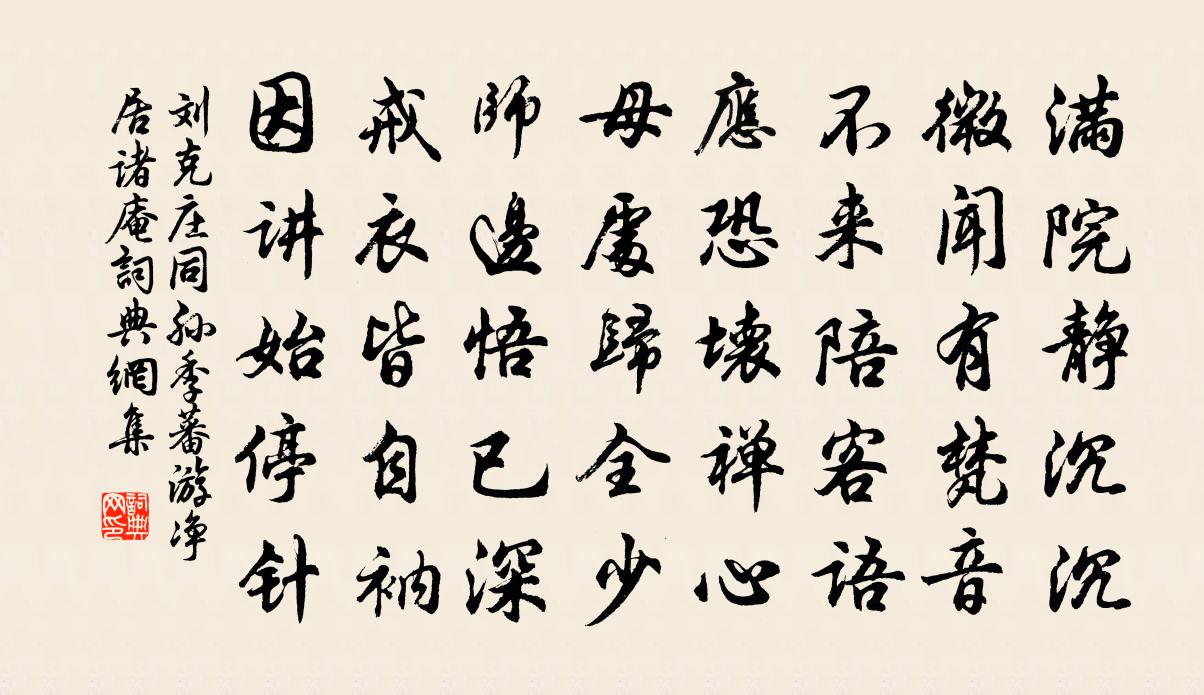 满院静沉沉
微闻有梵音
不来陪客语
應恐壊禅心
母處歸全少
師邊悟已深
戒衣皆自衲
因讲始停针
刘克庄同孙季蕃游净
居诸庵詞典網集
詞典
网印